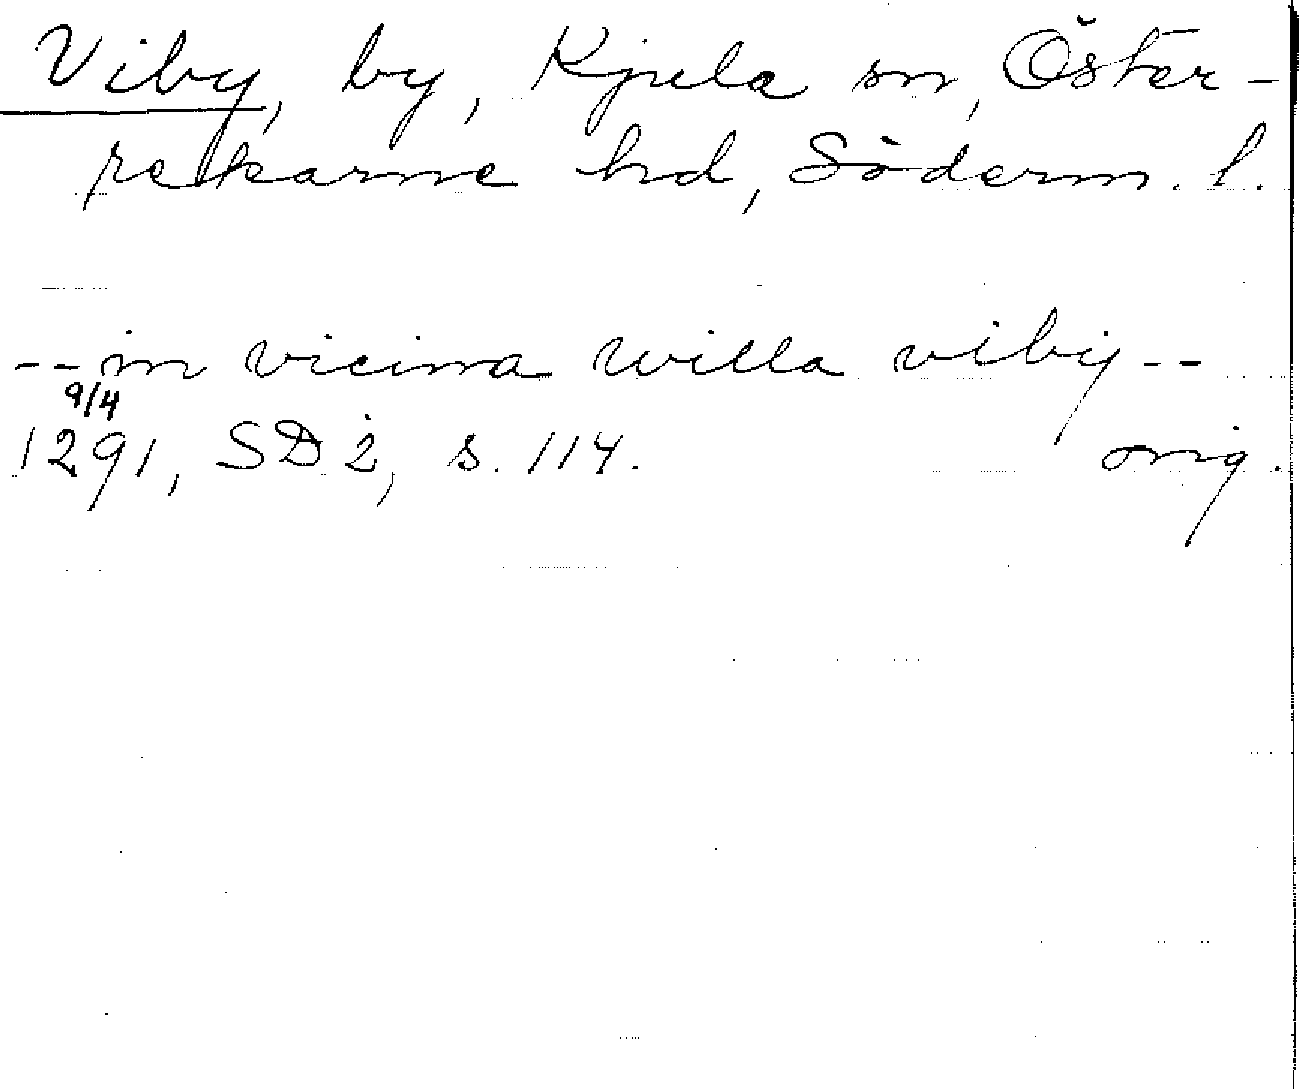 Viby, by, Kjula sn, Öster-
rekarne hd, Söderm. l.
--in vicina willa viby--
9/4
1291, SD 2, s. 114. orig.